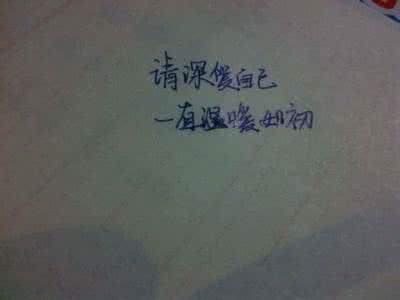 请深爱自己
一直温暖如初